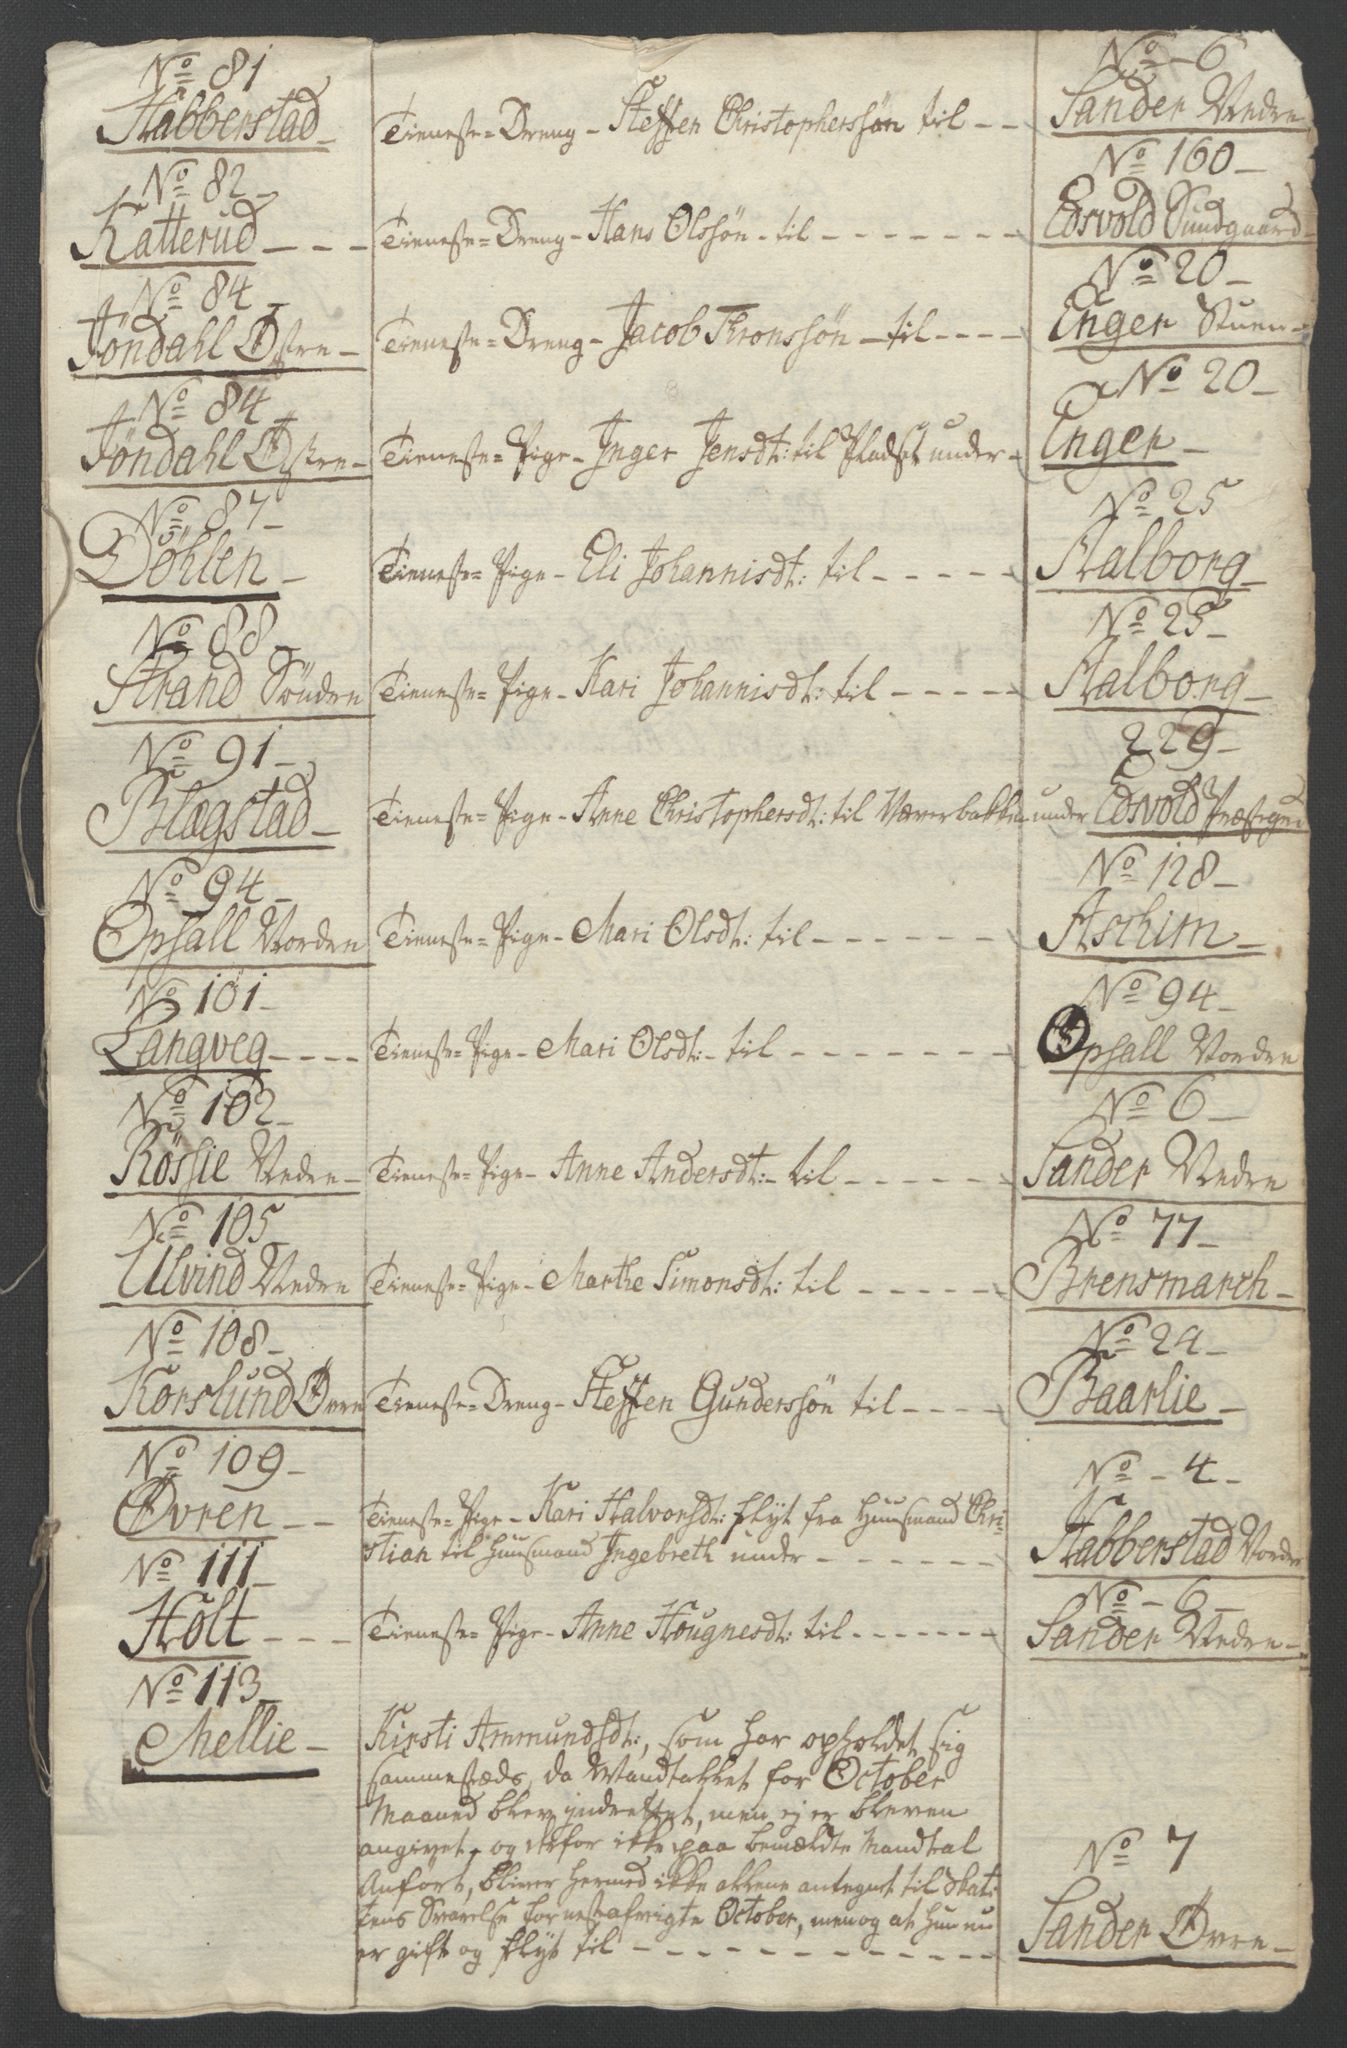 No 81
Habberstad - Tieneste=Dreng - Steffen Christophersøn til - -
No - 6
Sander Nedre
No 82 -
Katterud - - - Tieneste=Dreng - Hans Olssøn - til - - - - - - -
No 160 -
Edsvold Sundgaard
No 84 -
Jøndahl Østre - Tieneste=Dreng - Jacob Thronssøn - til - - - -
No 20 -
Enger Stuen -
No 84
Jøndahl Østre - Tieneste=Pige - Inger Jensdt: til Pladset under -
No 20 -
Enger -
No 87 -
Døhlen - Tieneste=Pige - Eli Johannisdt: til - - - - -
No 25
Aalborg -
No 88 -
Strand Søndre Tieneste=Pige - Kari Johannisdt: til - - - - -
No 25 -
Aalborg -
No 91 -
Blegstad - Tieneste=Pige - Anne Christophersdt: til under
229 -
Edsvold
No 94 -
Ophall Nordre Tieneste=Pige - Mari Olsdt: til - - - - - -
No 128 -
Aschim -
No 101 -
Langveg - - - - Tieneste=Pige - Mari Olsdt: - til - - - - - - -
No 94 -
Ophall Nordre
No 102 -
Røssie Nedre - Tieneste=Pige - Anne Andersdt: - til - - - - -
No 6 -
Sander Nedre
No 105
Ulvind Nedre Tieneste=Pige - Marthe Simonsdt: til - - - - -
No 77 -
Brensmarch -
No 108 -
Korslund Øvre Tieneste=Dreng - Steffen Gunderssøn til - - - -
No 24 -
Baarlie -
No 109 -
Øvren - - Tieneste=Pige - Kari Halvorsdt: flyt fra Huusmand Chri-
stian til Huusmand Ingebreth under - - - - - -
No - 4 -
Habberstad Nordre
No 111 -
Holt - - - Tieneste=Pige - Anne Hougnesdt: til - - - - - - -
No - 6 -
Sander Nedre -
No 113
Mellie - Kirsti Ammundsdt:, som har opholdet sig
sammestæds, da Mandtallet for October
Maaned blev indrettet, men ej er bleven
angivet, og derfor ikke paa bemældte Mandtal
Anført, bliver hermed ikke allene antegnet til Skat-
tens Svarelse for nestafvigte October, men og at hun nu
er gift og flyt til - - - - - - - - - - - -
No 7
Sander Øvre -